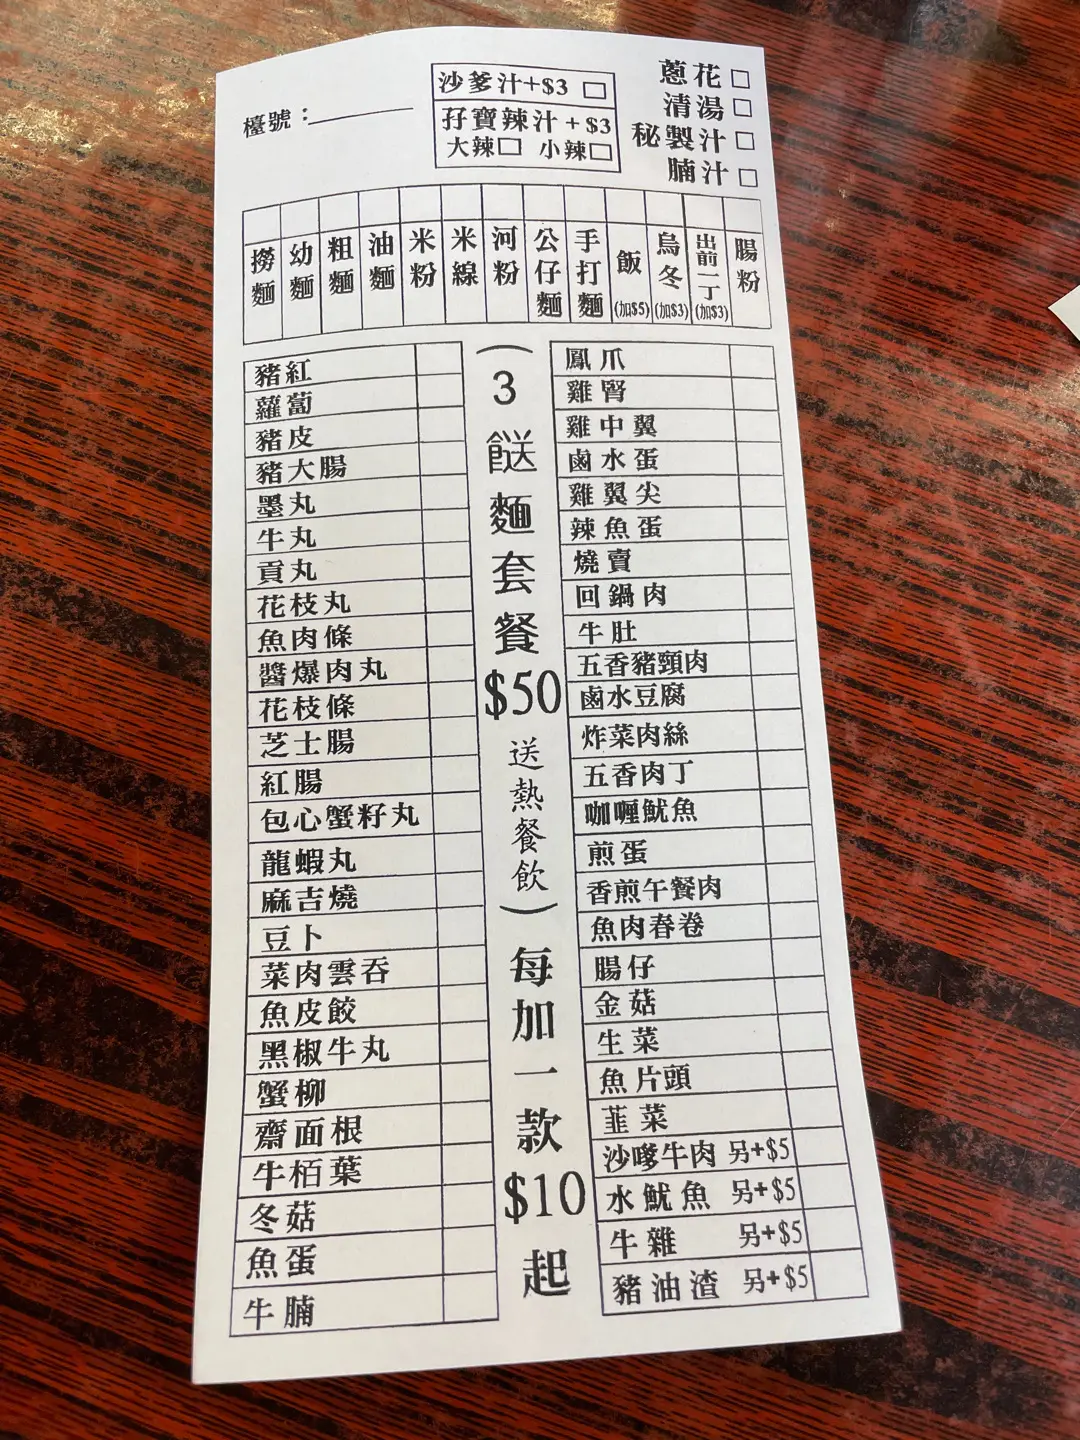 檯號：
沙爹汁+$3
孖寶辣汁+$3
大辣 小辣
蔥花
清湯
秘製汁
腩汁
撈麵
幼麵
粗麵
油麵
米粉
米線
河粉
公仔麵
手打麵
飯(加$5)
烏冬(加$3)
出前一丁(加$3)
腸粉
豬紅
蘿蔔
豬皮
豬大腸
墨丸
牛丸
貢丸
花枝丸
魚肉條
醬爆肉丸
花枝條
芝士腸
紅腸
包心蟹籽丸
龍蝦丸
麻吉燒
豆卜
菜肉雲吞
魚皮餃
黑椒牛丸
蟹柳
齋面根
牛栢葉
冬菇
魚蛋
牛腩
(3餸麵套餐$50送熱餐飲)每加一款$10起
鳳爪
雞腎
雞中翼
鹵水蛋
雞翼尖
辣魚蛋
燒賣
回鍋肉
牛肚
五香豬頸肉
鹵水豆腐
炸菜肉絲
五香肉丁
咖喱魷魚
煎蛋
香煎午餐肉
魚肉春卷
腸仔
金菇
生菜
魚片頭
韮菜
沙嗲牛肉 另+$5
水魷魚 另+$5
牛雜 另+$5
豬油渣 另+$5